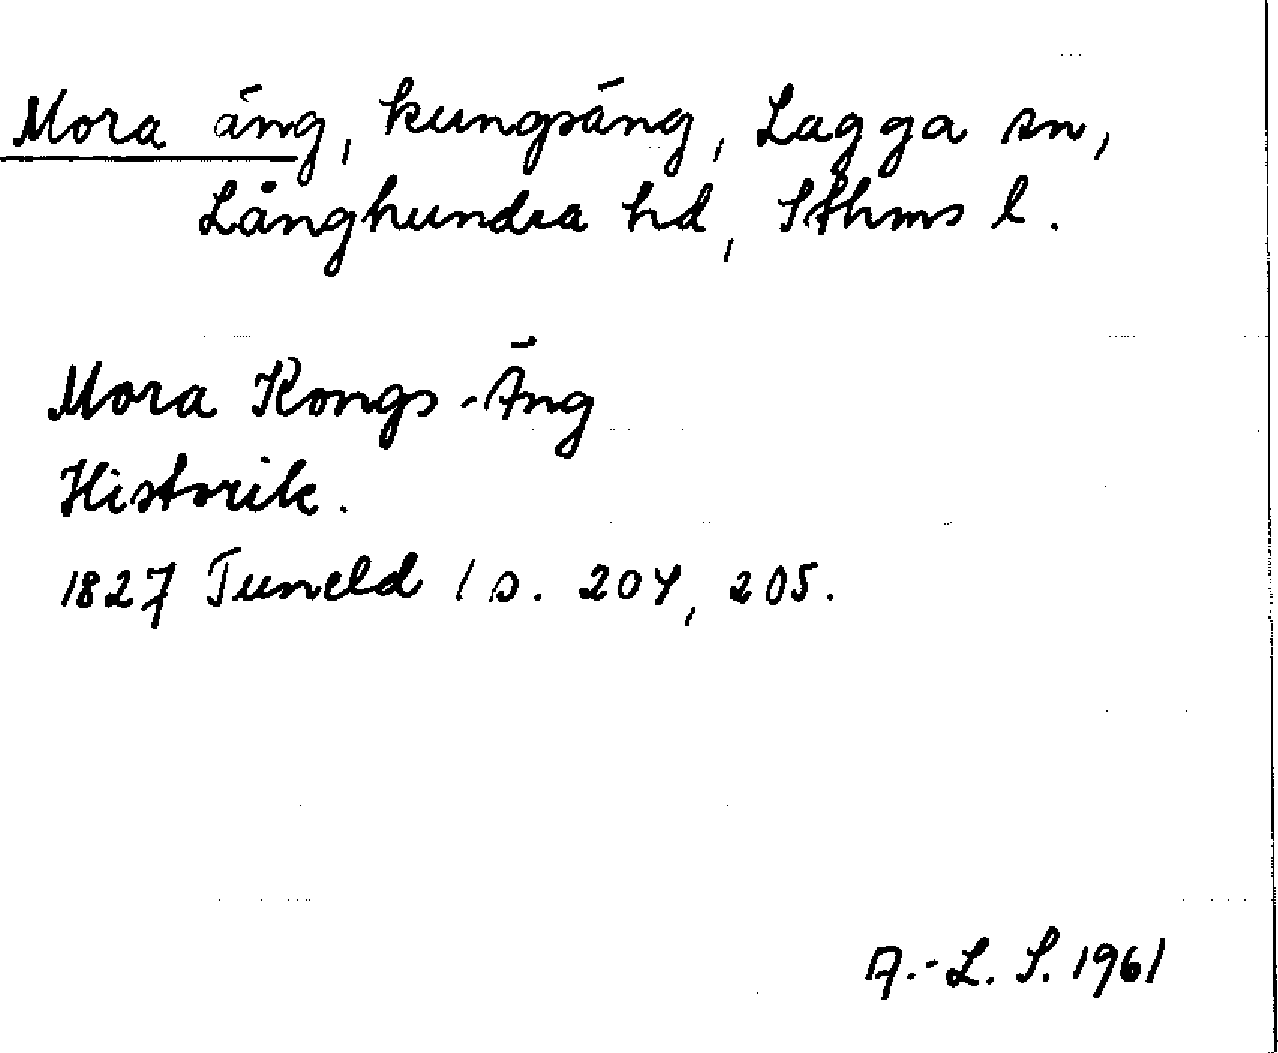 Mora äng, kungsäng, Lagga sn,
Långhundra hd, Sthms l.
Mora Kongs-Äng
Historik.
1827 Tuneld 1 s. 204, 205.
A.-L. S. 1961